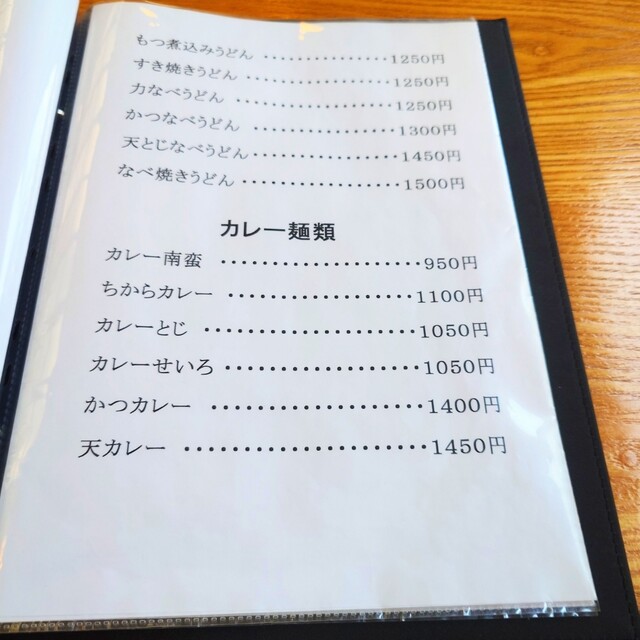 もつ煮込みうどん ････････････････1250円
すき焼きうどん ･･････････････････1250円
力なべうどん ････････････････････1250円
かつなべうどん ･･････････････････1300円
天とじなべうどん･････････････････1450円
なべ焼きうどん ･･････････････････1500円
カレー麺類
カレー南蛮 ････････････････････950円
ちからカレー ･･････････････････1100円
カレーとじ ････････････････････1050円
カレーせいろ ･･････････････････1050円
かつカレー ････････････････････1400円
天カレー ･･････････････････････1450円